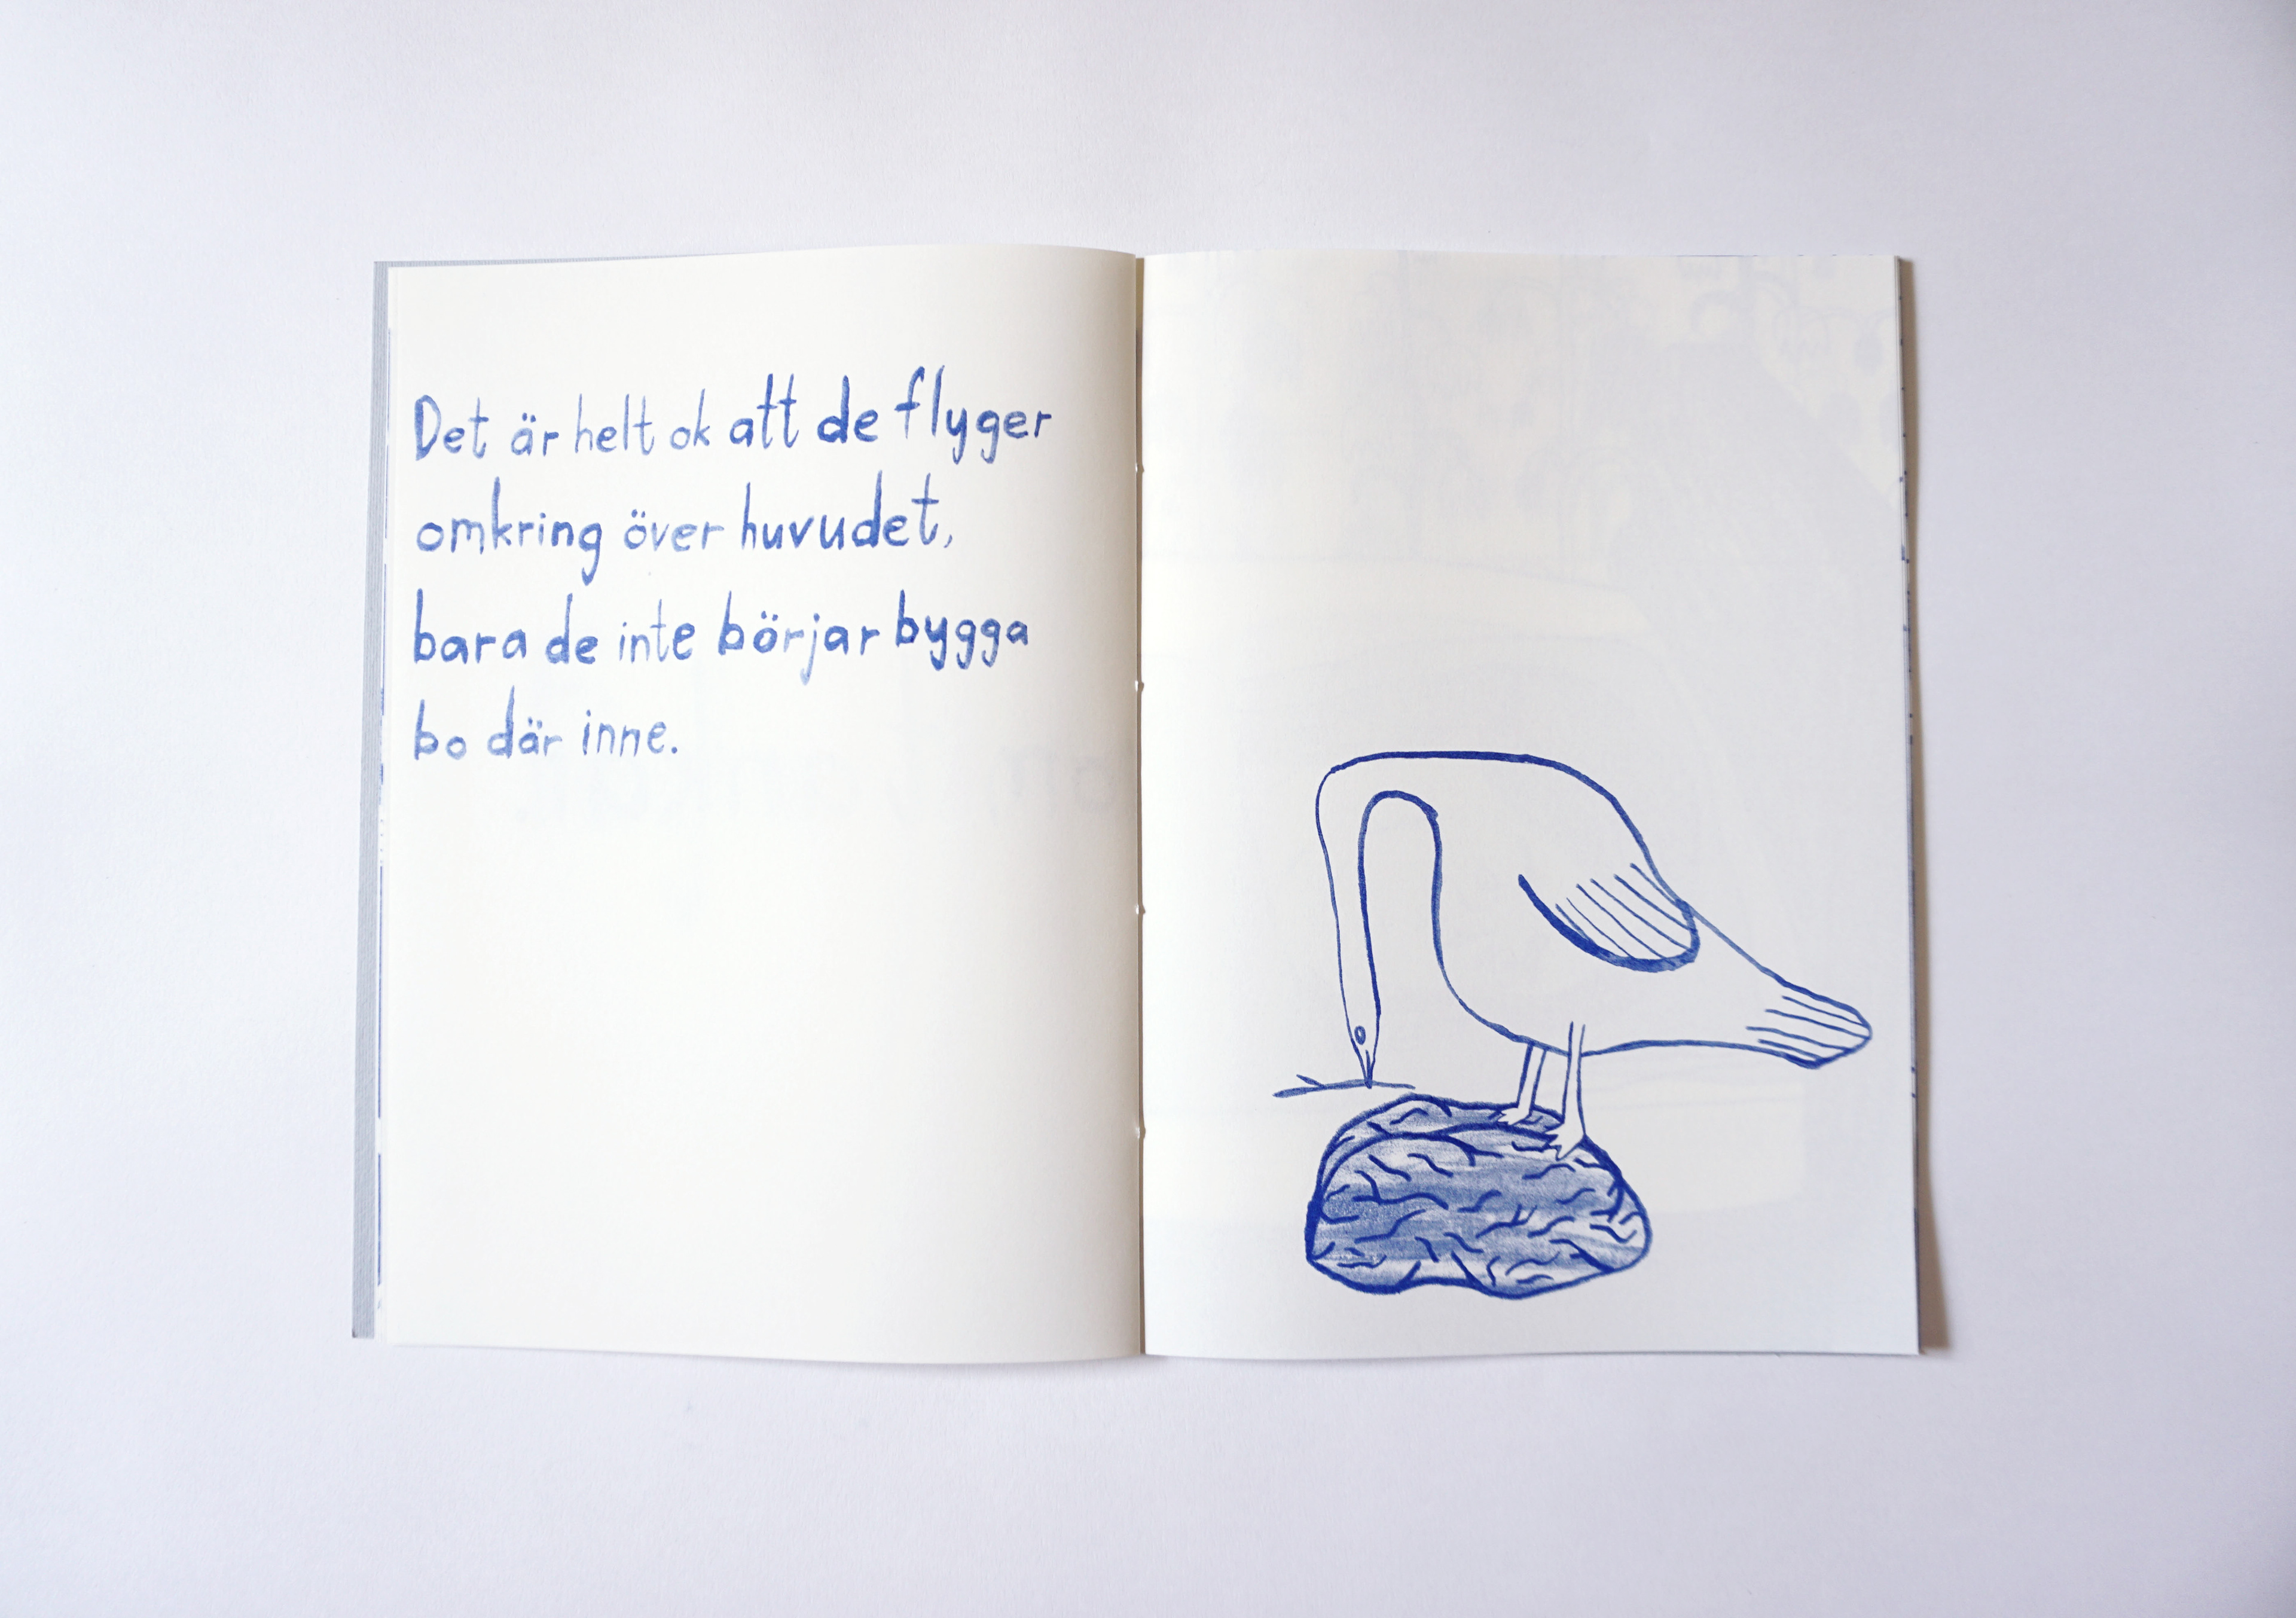 Det är helt ok att de flyger
omkring över huvudet,
bara de inte börjar bygga
bo där inne.